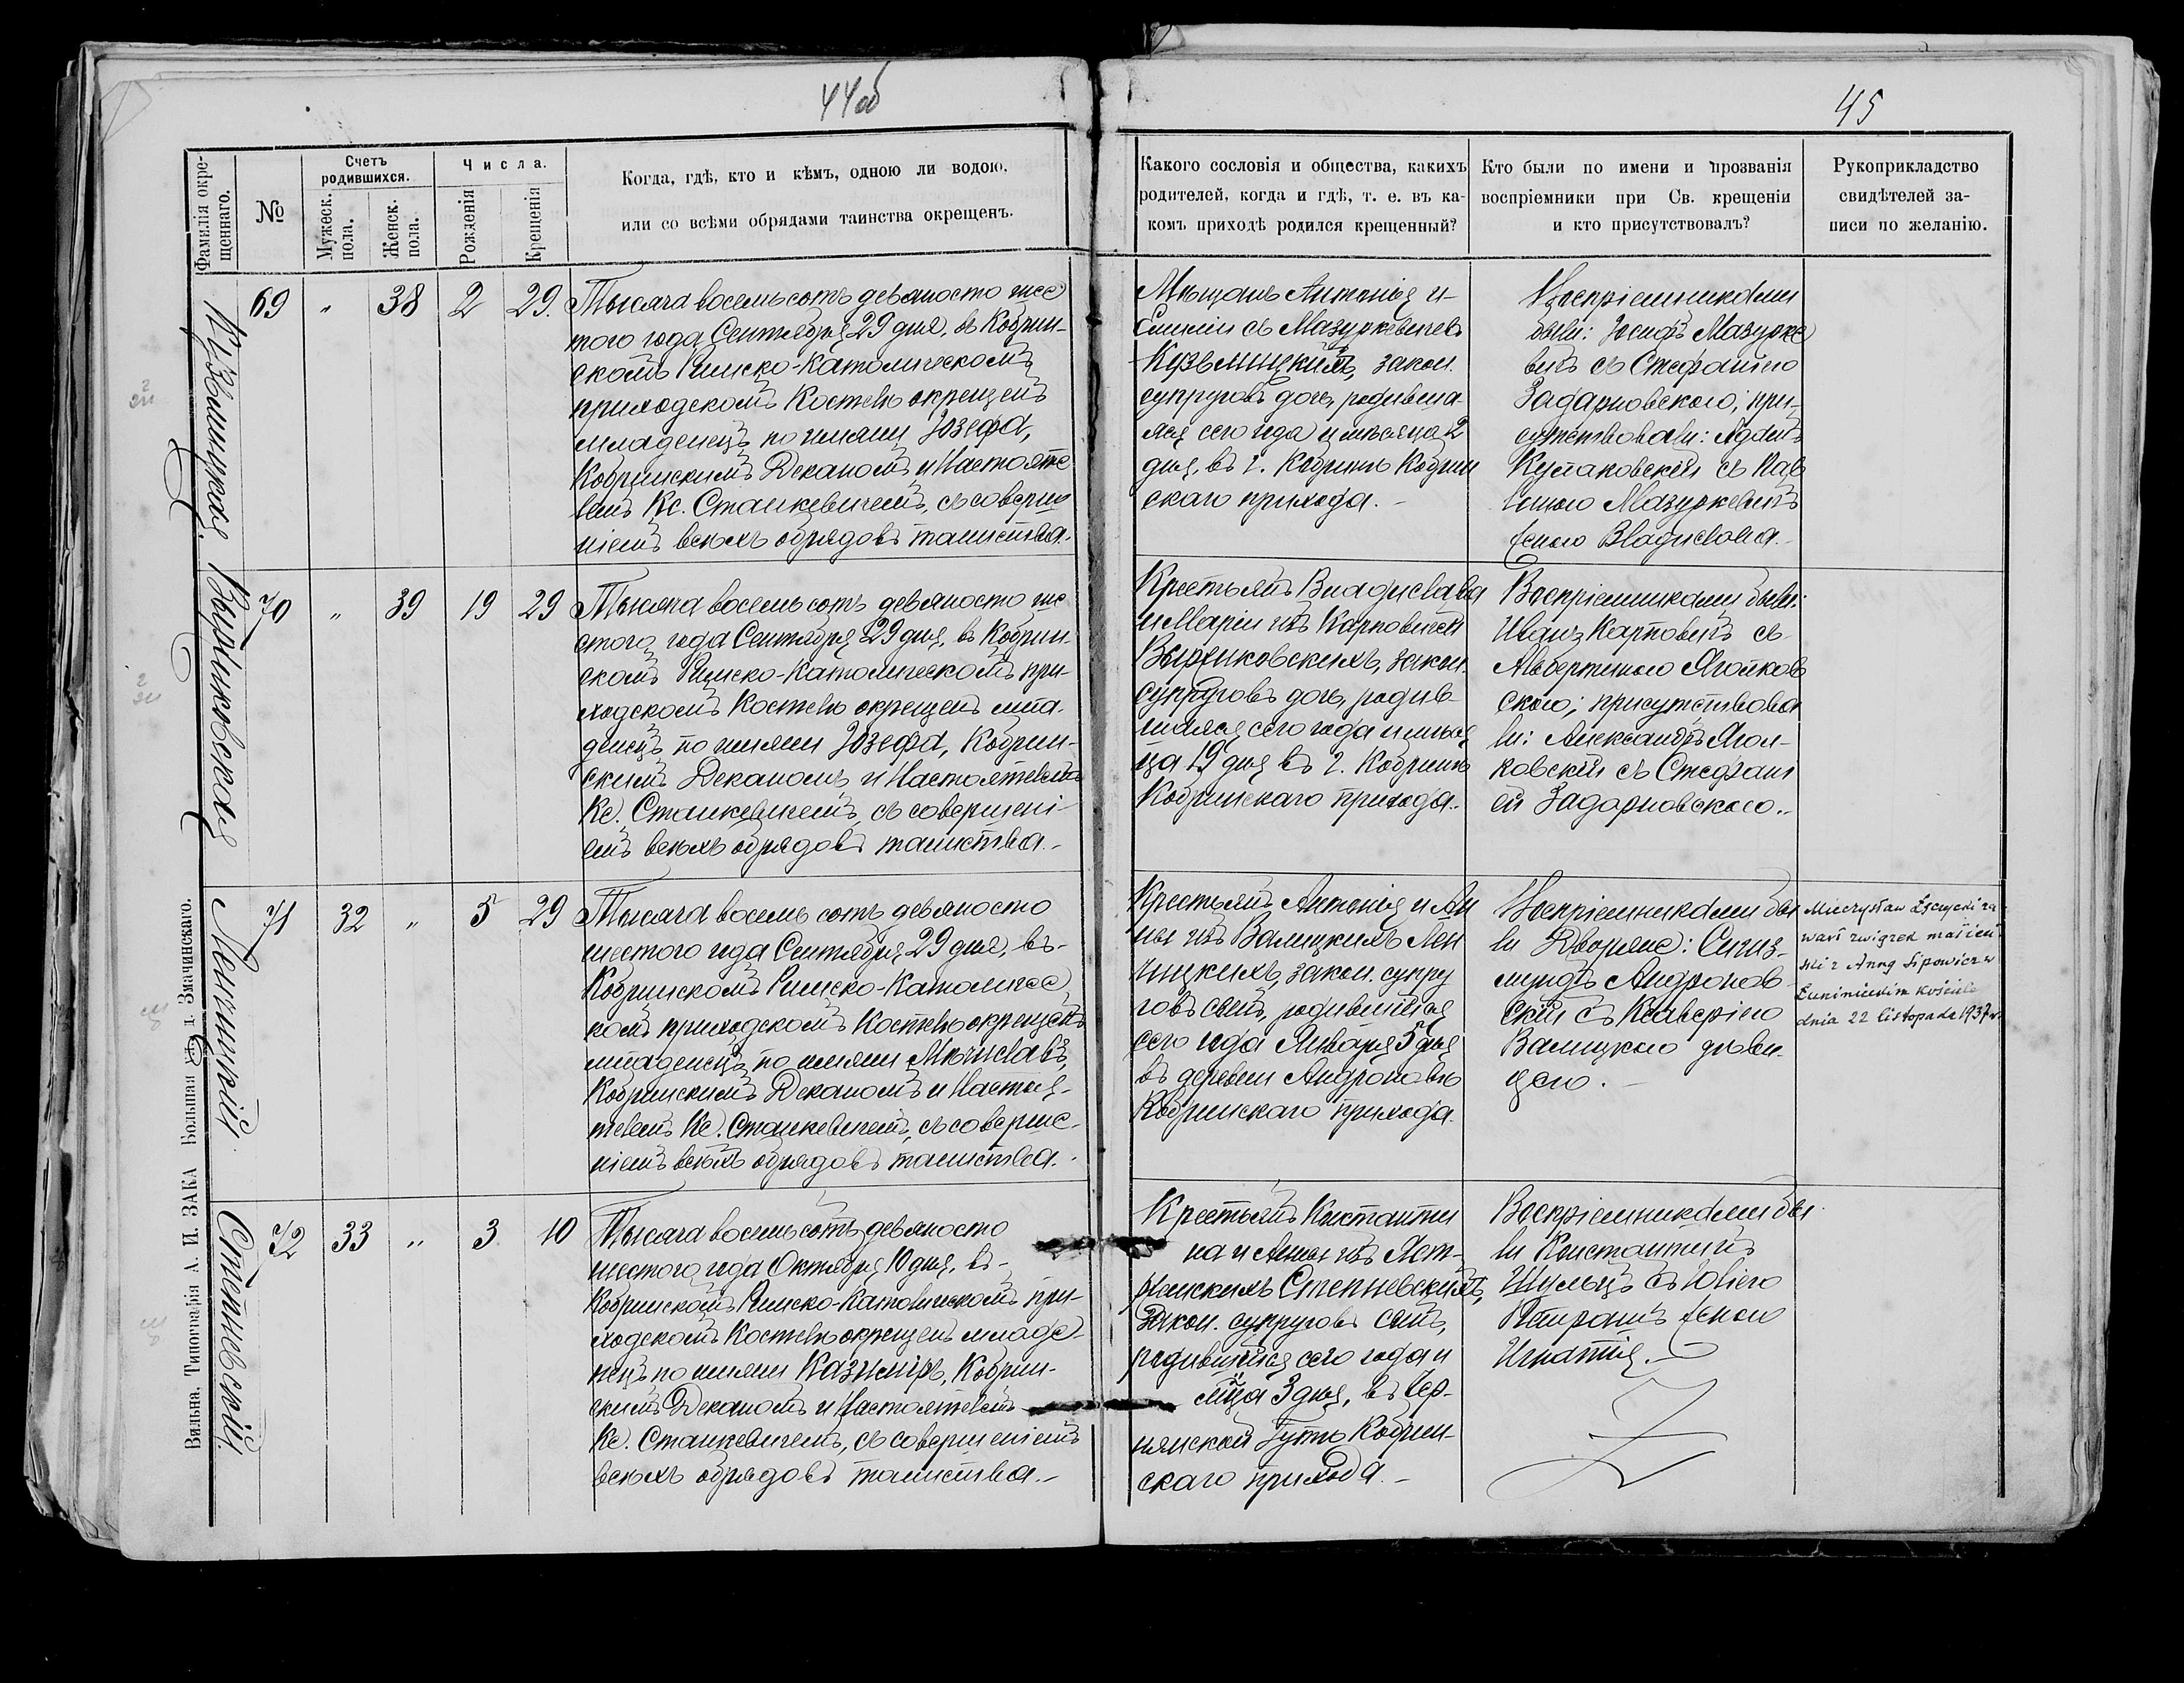 44 об
45
Фамилія окре-
щеннаго.
№
Счетъ
родившихся.
Мужеск.
пола.
Женск.
пола.
Числа.
Рожденія
Крещенія
Когда, гдѣ, кто и кѣмъ, одною ли водою,
или со всѣми обрядами таинства окрещенъ.
Какого сословія и общества, какихъ
родителей, когда и гдѣ, т. е. въ ка-
комъ приходѣ родился крещенный?
Кто были по имени и прозванія
воспріемники при Св. крещеніи
и кто присутствовалъ?
Рукоприкладство
свидѣтелей за-
писи по желанію.
Кузьмицкая.
69 " 38 2 29.
Тысяча восемьсотъ девяносто шес
того года Сентября 29 дня, въ Кобрин-
скомъ Римско-Католическомъ
приходскомъ Костелѣ окрещенъ
младенецъ по имени Юзефа,
Кобринскимъ Деканомъ и Настояте
лемъ Кс. Станкевичемъ, съ соверше
ніемъ всѣхъ обрядовъ таинства.
Мѣщанъ Антонія и
Емиліи съ Мазуркевичевъ
Кузьмицкихъ, закон.
супруговъ дочь, родивша-
яся сего года и мѣсяца 2
дня, въ г. Кобринѣ Кобрин
скаго прихода.-
Воспріемниками
были: Іосифъ Мазурке
вичъ съ Стефаніею
Задарновскою; при-
сутствовали: Адамъ
Кулаковскій съ Пав
линою Мазуркевичъ
женою Владислава.
Выржиковская
70 " 39 19 29
Тысяча восемьсотъ девяносто ше
стого года Сентября 29 дня, въ Кобрин-
скомъ Римско-Католическомъ при-
ходскомъ Костелѣ окрещенъ мла-
денецъ по имени Юзефа, Кобрин-
скимъ Деканомъ и Настоятелемъ
Кс. Станкевичемъ, съ совершені-
емъ всѣхъ обрядовъ таинства.-
Крестьянъ Владислава
и Маріи изъ Карповичей
Выржиковскихъ, закон.
супруговъ дочь, родив-
шаяся сего года и мѣся
ца 19 дня въ г. Кобринѣ
Кобринскаго прихода.
Воспріемниками были:
Иванъ Карповичъ съ
Альбертиною Яголков
скою; присутствова
ли: Александръ Ягол-
ковскій съ Стефані
ей Задарновскою.-
Ленчицкій
71 32 " 5 29
Тысяча восемь сотъ девяносто
шестого года Сентября 29 дня, въ-
Кобринскомъ Римско-Католичес
комъ приходскомъ Костелѣ окрещенъ
младенецъ по имени Мечиславъ,
Кобринскимъ Деканомъ и Настоя-
телемъ Кс. Станкевичемъ, съ соверше-
ніемъ всѣхъ обрядовъ таинства.
Крестьянъ Антонія и Ан
ны изъ Валицкихъ Лен
чицкихъ, закон. супру
говъ сынъ, родившійся
сего года Января 5 дня
въ деревни Андроновѣ
Кобринскаго прихода.
Воспріемниками бы
ли Дворяне: Сигиз-
мундъ Андронов
скій съ Ксаверіею
Валицкою дѣви-
цею.-
Mieczysław Łęczycki za
warł związek małżeń
ski z Anną Lipowicz w
Łuninieckim kościele
dnia 22 listopada 1937 r.
Степневскій.
72 33 " 3 10
Тысяча восемьсотъ девяносто
шестого года Октября 10 дня, въ-
Кобринскомъ Римско-Католическомъ при-
ходскомъ Костелѣ окрещенъ младе-
нецъ по имени Казимиръ, Кобрин-
скимъ Деканомъ и Настоятелемъ
Кс. Станкевичемъ, съ совершеніемъ
всѣхъ обрядовъ таинства.-
Крестьянъ Константи
на и Анны изъ Яст-
Степневскихъ,
закон. супруговъ сынъ,
родившійся сего года и
мѣца 3 дня, въ Чер-
нянской Гутѣ Кобрин-
скаго прихода.-
Воспріемниками бы
ли Константинъ
Шульцъ съ Юліею
женою
Игнатія.-
Вильна. Типографія А. И. ЗАКА Большая ул. д. Змачинскаго.